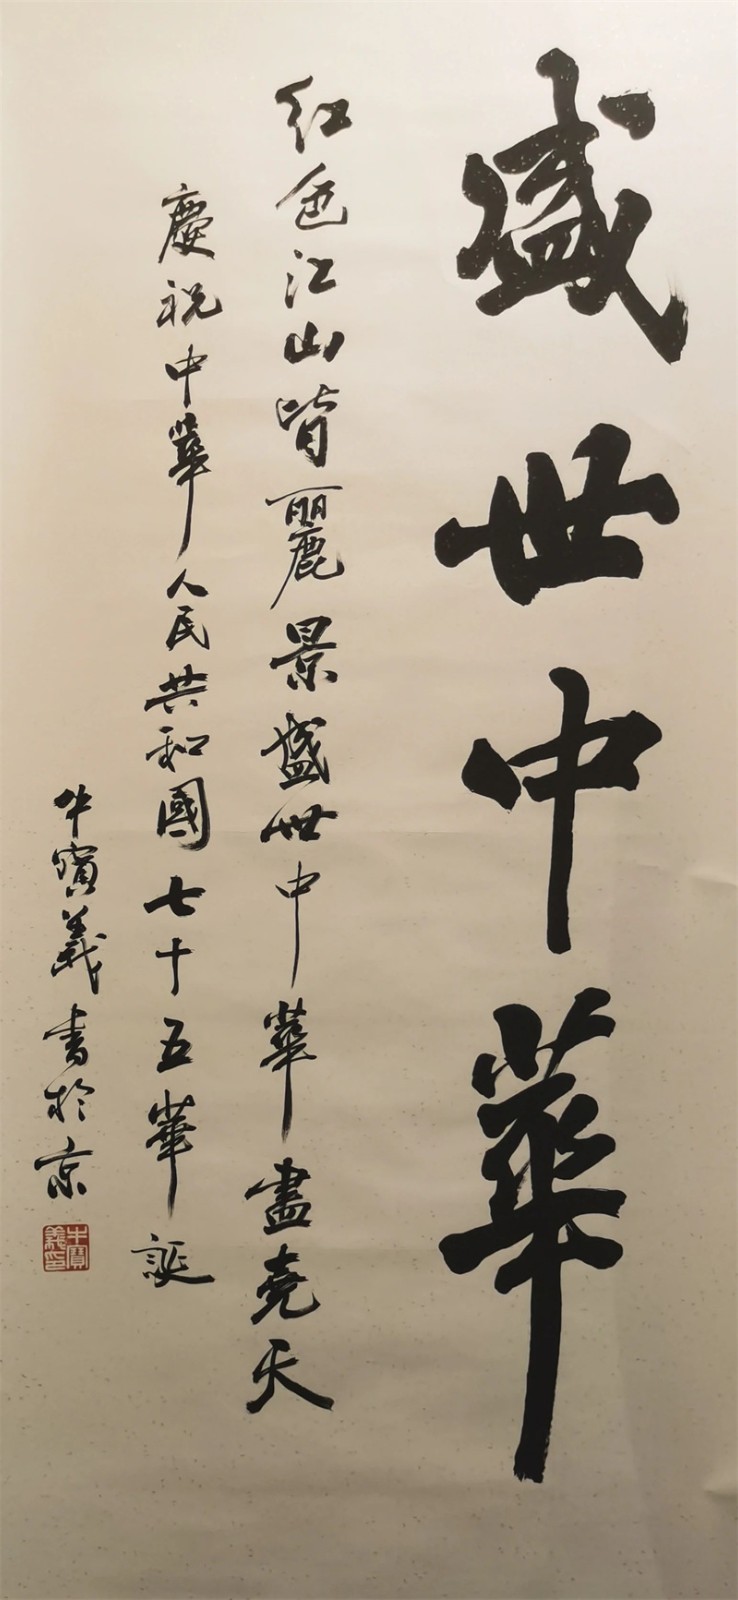 盛世中華
红色江山皆麗景盛世中華盡堯天
慶祝中華人民共和國七十五華誕
牛寶義書於京
牛寶義印